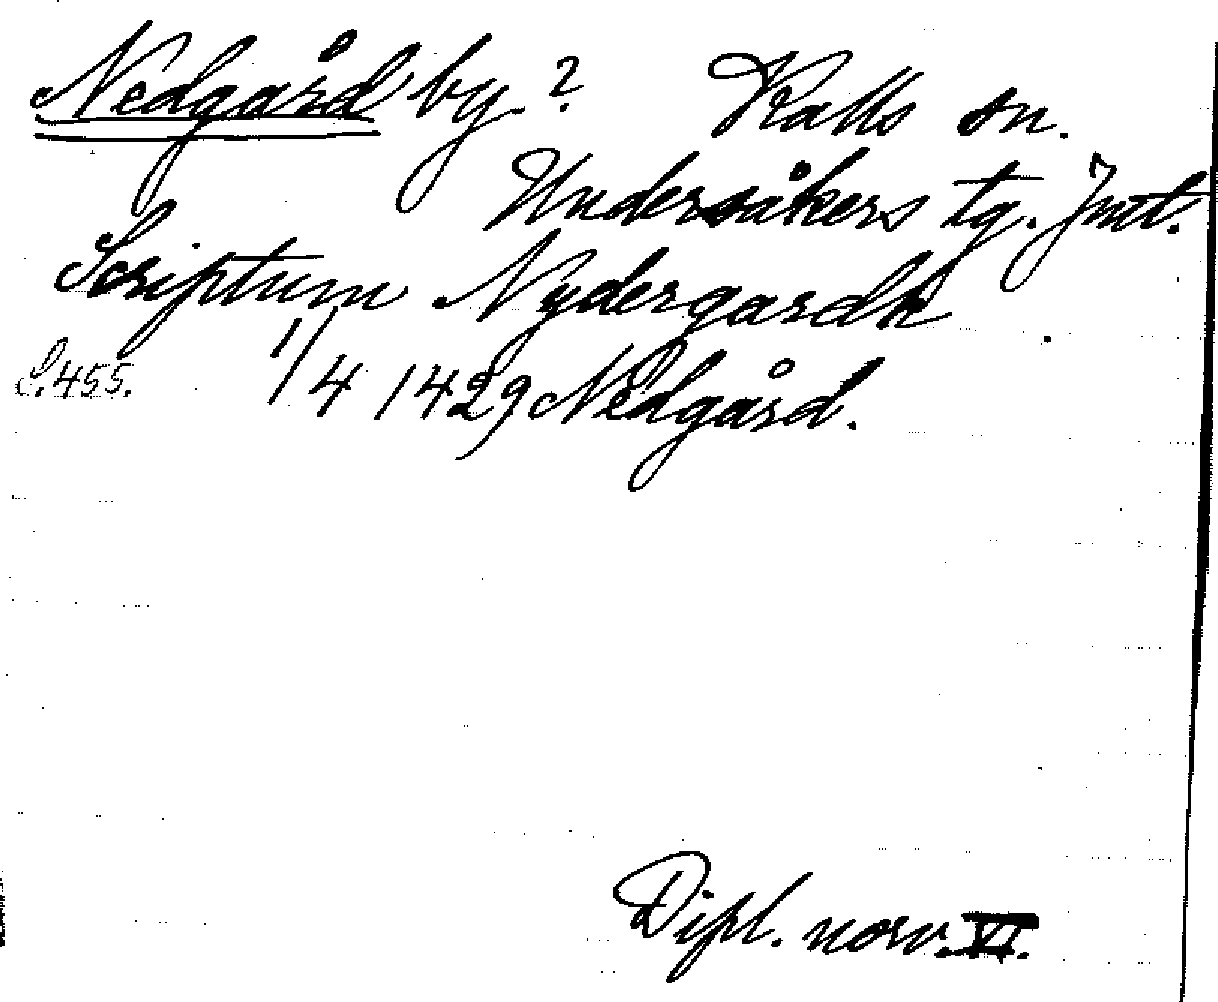 Nedgård by? Kalls sn.
Undersåkers tg. Jmt.
Scriptum Nydergardh
S. 455. 1/4 1429 Nedgård.
Dipl. norv. VI.